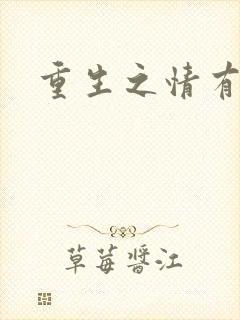 重生之情有
草莓酱江